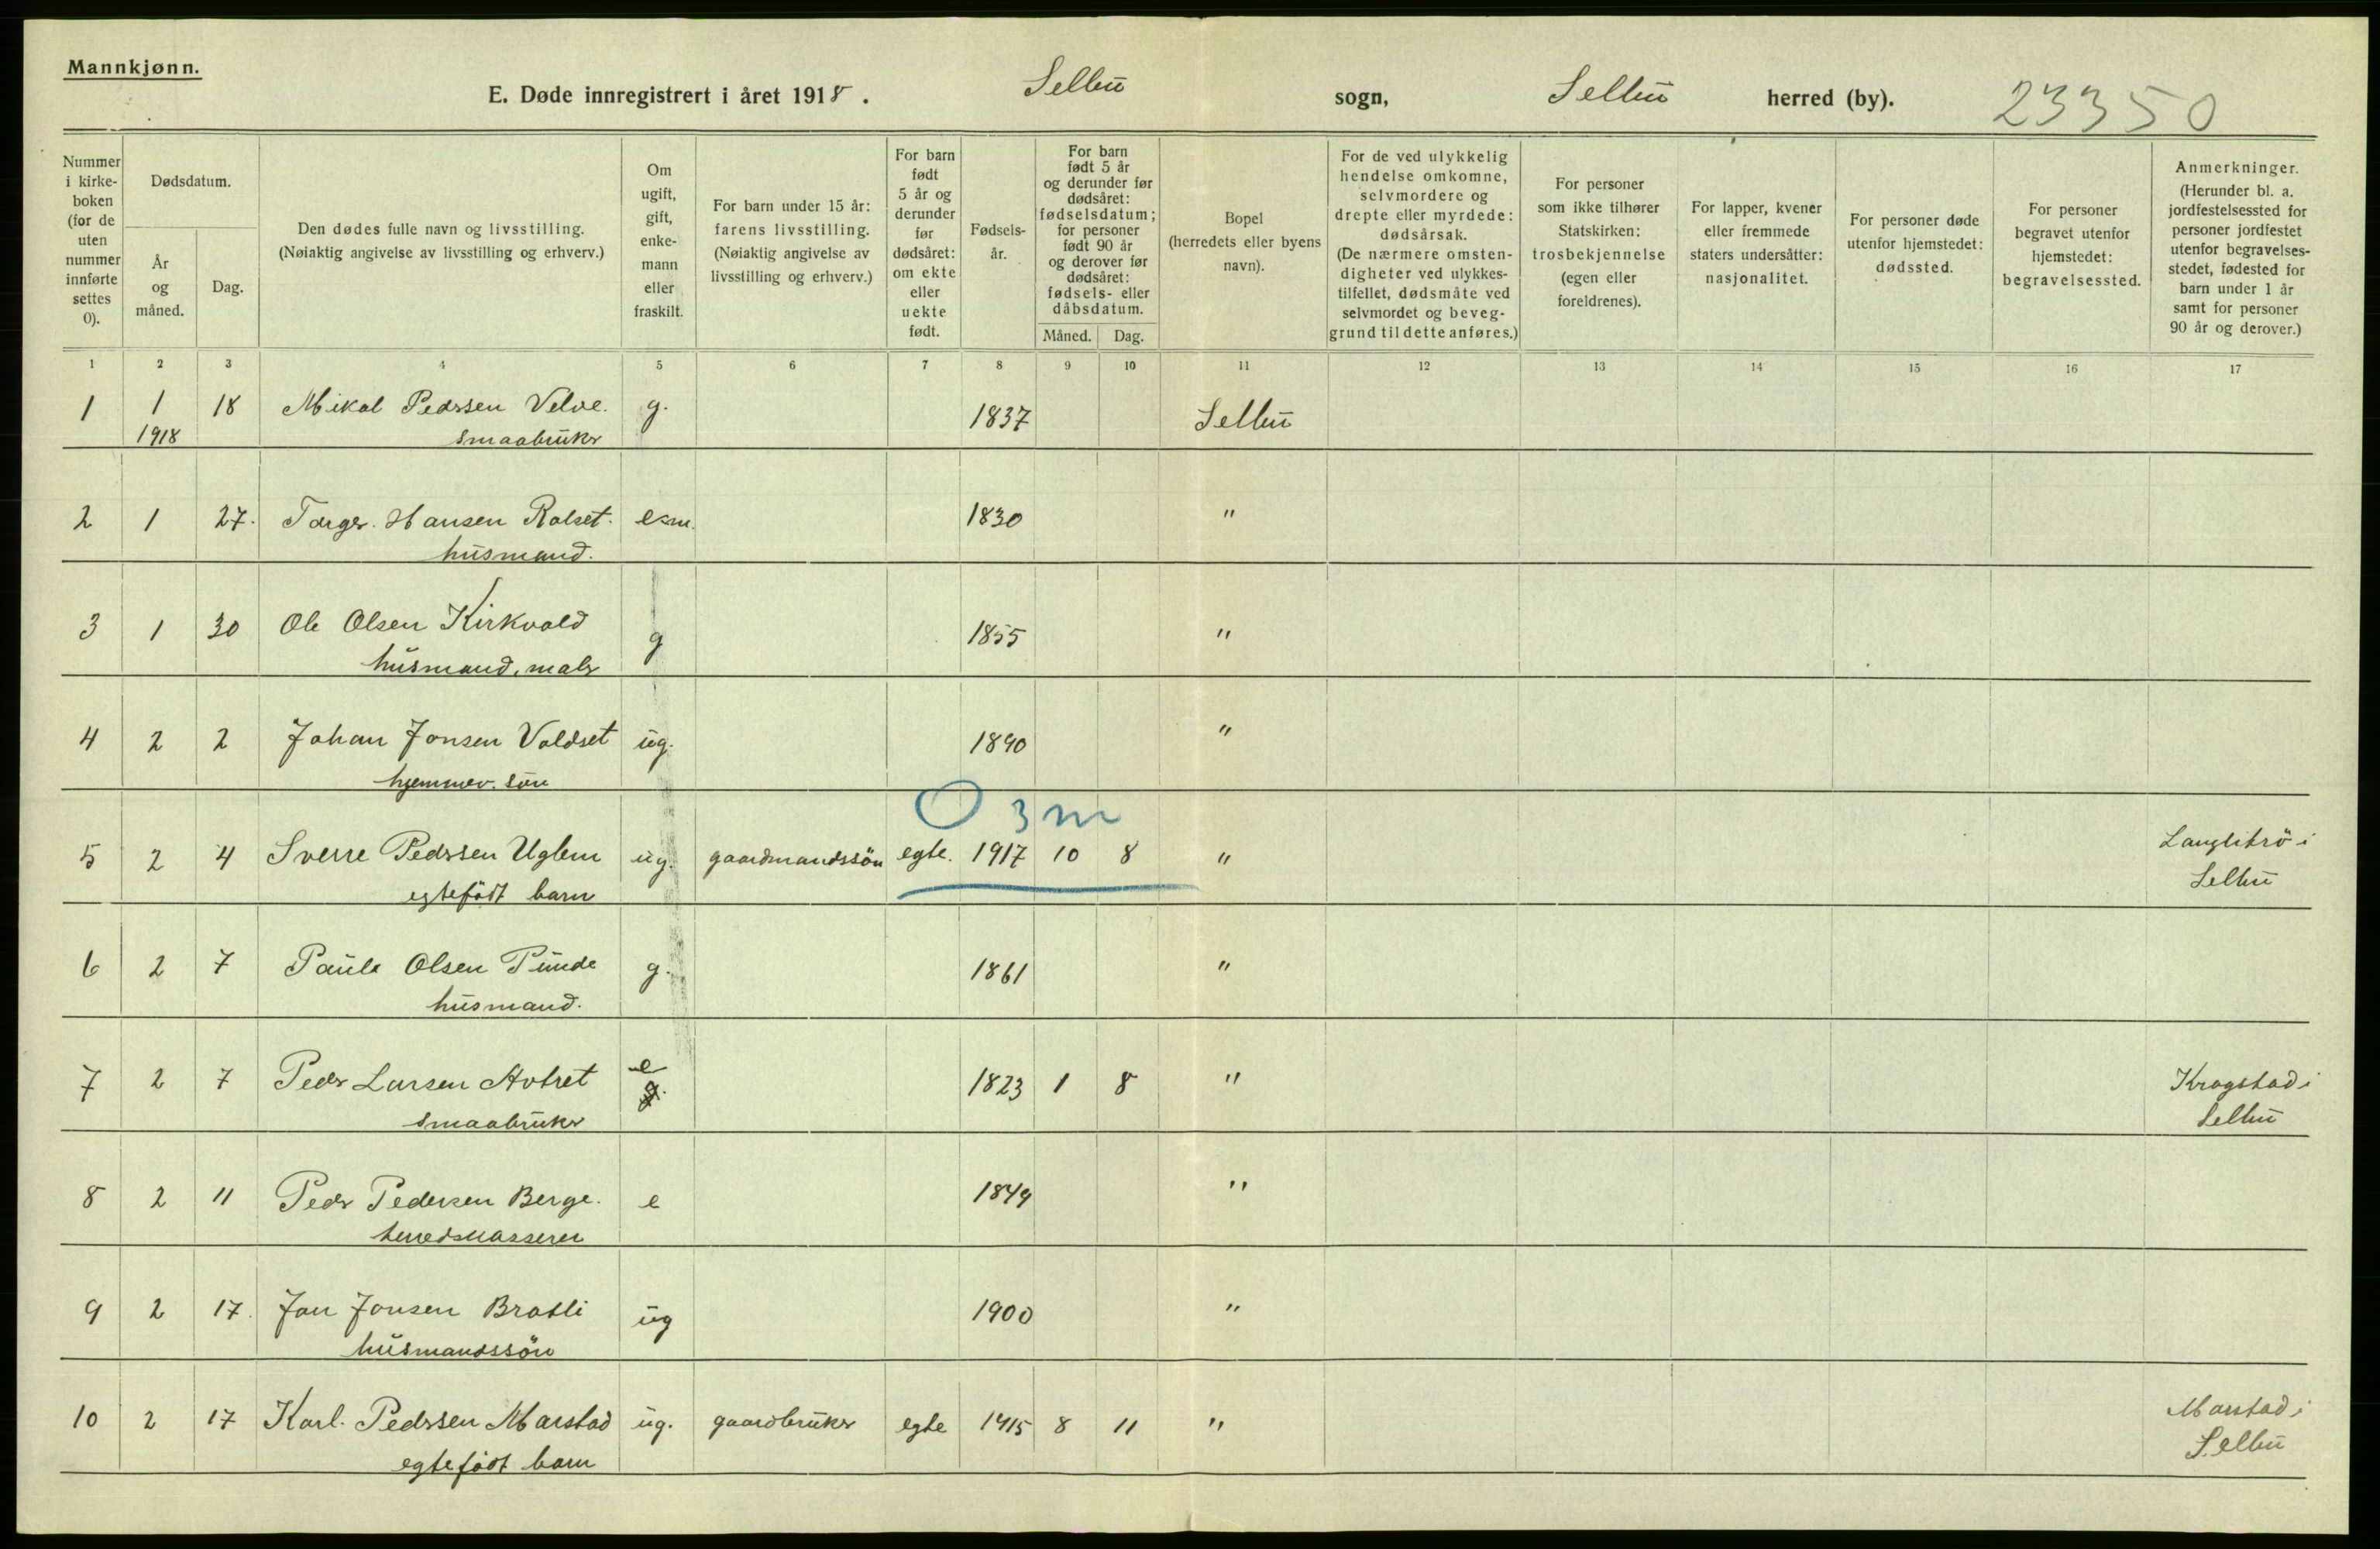 Mannkjønn.
E. Døde innregistrert i året 1918. Selbu sogn, Selbu herred (by). 23350
Nummer i kirke-boken (for de uten nummer innførte settes 0).
Dødsdatum.
År og måned.
Dag.
Den dødes fulle navn og livsstilling. (Nøiaktig angivelse av livsstilling og erhverv.)
Om ugift, gift, enke-mann eller fraskilt.
For barn under 15 år: farens livsstilling. (Nøiaktig angivelse av livsstilling og erhverv.)
For barn født 5 år og derunder før dødsåret: om ekte eller uekte født.
Fødsels-år.
For barn født 5 år og derunder før dødsåret: fødselsdatum; for personer født 90 år og derover før dødsåret: fødsels- eller dåbsdatum.
Måned. Dag.
Bopel (herredets eller byens navn).
For de ved ulykkelig hendelse omkomne, selvmordere og drepte eller myrdede: dødsårsak. (De nærmere omsten-digheter ved ulykkes-tilfellet, dødsmåte ved selvmordet og beveg-grund til dette anføres.)
For personer som ikke tilhører Statskirken: trosbekjennelse (egen eller foreldrenes).
For lapper, kvener eller fremmede staters undersåtter: nasjonalitet.
For personer døde utenfor hjemstedet: dødssted.
For personer begravet utenfor hjemstedet: begravelsessted.
Anmerkninger. (Herunder bl. a. jordfestelsessted for personer jordfestet utenfor begravelses-stedet, fødested for barn under 1 år samt for personer 90 år og derover.)
1 2 3 4 5 6 7 8 9 10 11 12 13 14 15 16 17
1 1 18 Mikal Pedersen Velve. g. 1837 Selbu
1918 smaabruker
2 1 27. Torger Hansen Rolset. ekm. 1830 "
husmand.
3 1 30 Ole Olsen Kirkvold g 1855 "
husmand, maler
4 2 2 Johan Jonsen Voldset ug. 1890 "
hjemmev. søn
O 3 m
5 2 4 Sverre Pedersen Uglem ug. gaardmandssön egte. 1917 10 8 " Langlitrö i
egtefödt barn Selbu
6 2 7 Paul Olsen g. 1861 "
husmand.
7 2 7 Peder Larsen e 1823 1 8 " Kragstad i
smaabruker g. Selbu
8 2 11 Peder Pedersen Berge. e 1849 "
herredskasserer
9 2 17. Jon Jonsen Bratli ug 1900 "
husmandssön
10 2 17 Karl Pedersen Marstad ug. gaardbruker egte 1915 8 11 " Marstad i
egtefödt barn Selbu